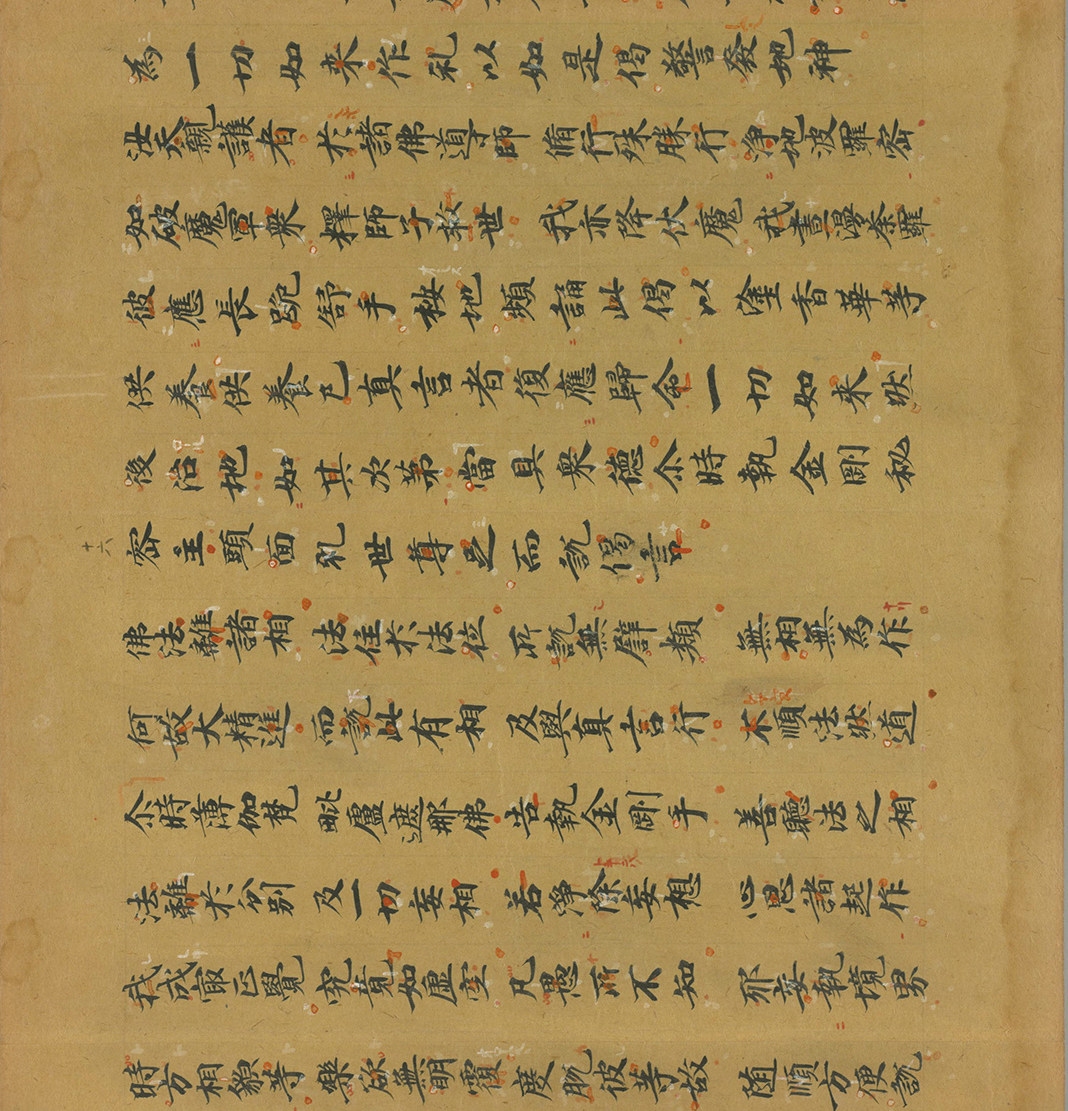 為一切如来作礼以如是偈警發地神
汝天親護者 於諸佛導師 脩行殊勝行 淨地波羅密
如破魔軍衆 釋師子救世 我亦降伏魔 我畫漫荼羅
彼應長跪舒手按地頻誦此偈以塗香華等
供養供養已真言者復應歸命一切如来然
後治地如其次第當具衆德尒時執金剛秘
密主頭面礼世尊足而說偈言
十六
佛法離諸相 法住於法位 所說無譬類 無相無為作
何故大精進 而說此有相 及與真言行 不順法然道
尒時薄伽梵 毗盧遮那佛 告執金剛手 善聽法之相
法離於分別 及一切妄相 若淨除妄想 心思諸起作
我成最正覺 究竟如虛空 凡愚所不知 邪妄執境界
時方相貌等 樂欲無明覆 度脫彼等故 随順方便說